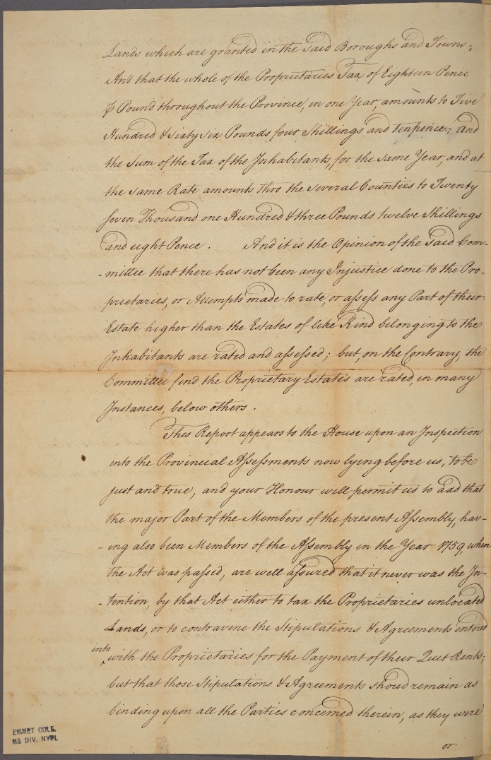 Lands which are granted in the said Boroughs and Towns;
And that the whole of the Proprietaries Tax of Eighteen Pence
⅌ Pound throughout the Province, in one Year, amounts to Five
Hundred & Sixty Six Pounds four Shillings and tenpence; and
the Sum of the Tax of the Inhabitants, for the same Year, and at
the same Rate amounts thro the several Counties to Twenty
seven Thousand one Hundred & three Pounds twelve Shillings
and eight Pence. And it is the Opinion of the said Com-
-mittee that there has not been any Injustice done to the Pro-
prietaries, or Attempts made to rate, or assess any Part of their
Estate higher than the Estates of like Kind belonging to the
Inhabitants are rated and assessed; but, on the contrary, the
Committee find the Proprietary Estates are rated, in many
Instances, below others.
This Report appears to the House upon an Inspection
into the Provincial Assessments now lying before us, to be
just and true, and your Honour will permit us to add that
the major Part of the Members of the present Assembly, hav-
-ing also been Members of the Assembly in the Year 1759 when
the Act was passed, are well assured that it never was the In-
-tention, by that Act either to tax the Proprietaries unlocated
Lands, or to contravene the Stipulations & Agreements entered
into
with the Proprietaries for the Payment of their Quit Rents;
but that those Stipulations & Agreements should remain as
binding upon all the Parties concerned therein, as they were
or
EMMET COLL.
MS DIV. NYPL